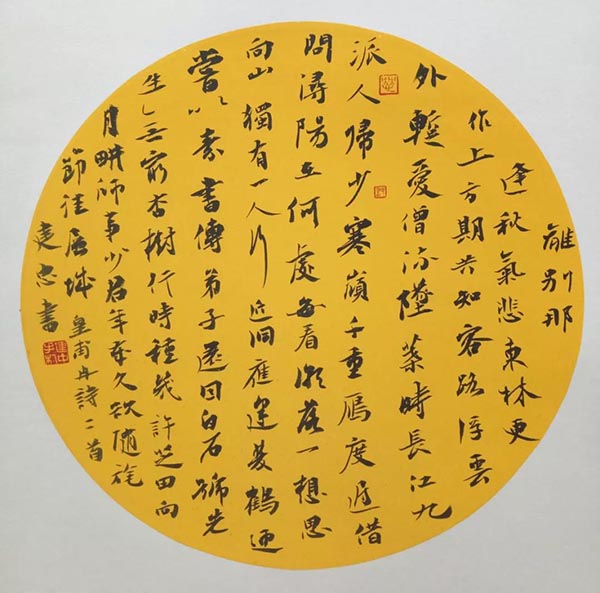 離別那
逢秋氣悲東林更
作上方期共知客路浮雲
外暫愛僧房墜葉時長江九
派人歸少寒嶺千重鴈度遲借
問潯陽在何處每看潮落一想思
向山獨有一人行近洞應逢雙鶴迎
嘗以素書傳弟子還因白石號先
生無窮杏樹行時種幾許芝田向
月畊師事少君年歲久欲隨旄
節往層城 皇甫冉詩二首
建忠書